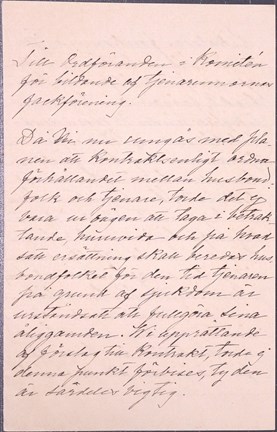 Till Ordföranden i Komitén
för bildande af tjenarinnornas
fackförening.
Då Ni nu umgås med pla-
nen att kontraktsenligt ordna
förhållandet mellan husbond-
folk och tjenare, torde det ej
vara ur vägen att taga i betrak-
tande, huruvida och på hvad
sätt ersättning skall beredas hus-
bondfolket för den tid tjenaren
på grund af sjukdom är
urståndsatt att fullgöra sina
åligganden. Vid upprättande
af förslag till Kontrakt, torde ej
denna punkt förbises, ty den
är särdeles vigtig.